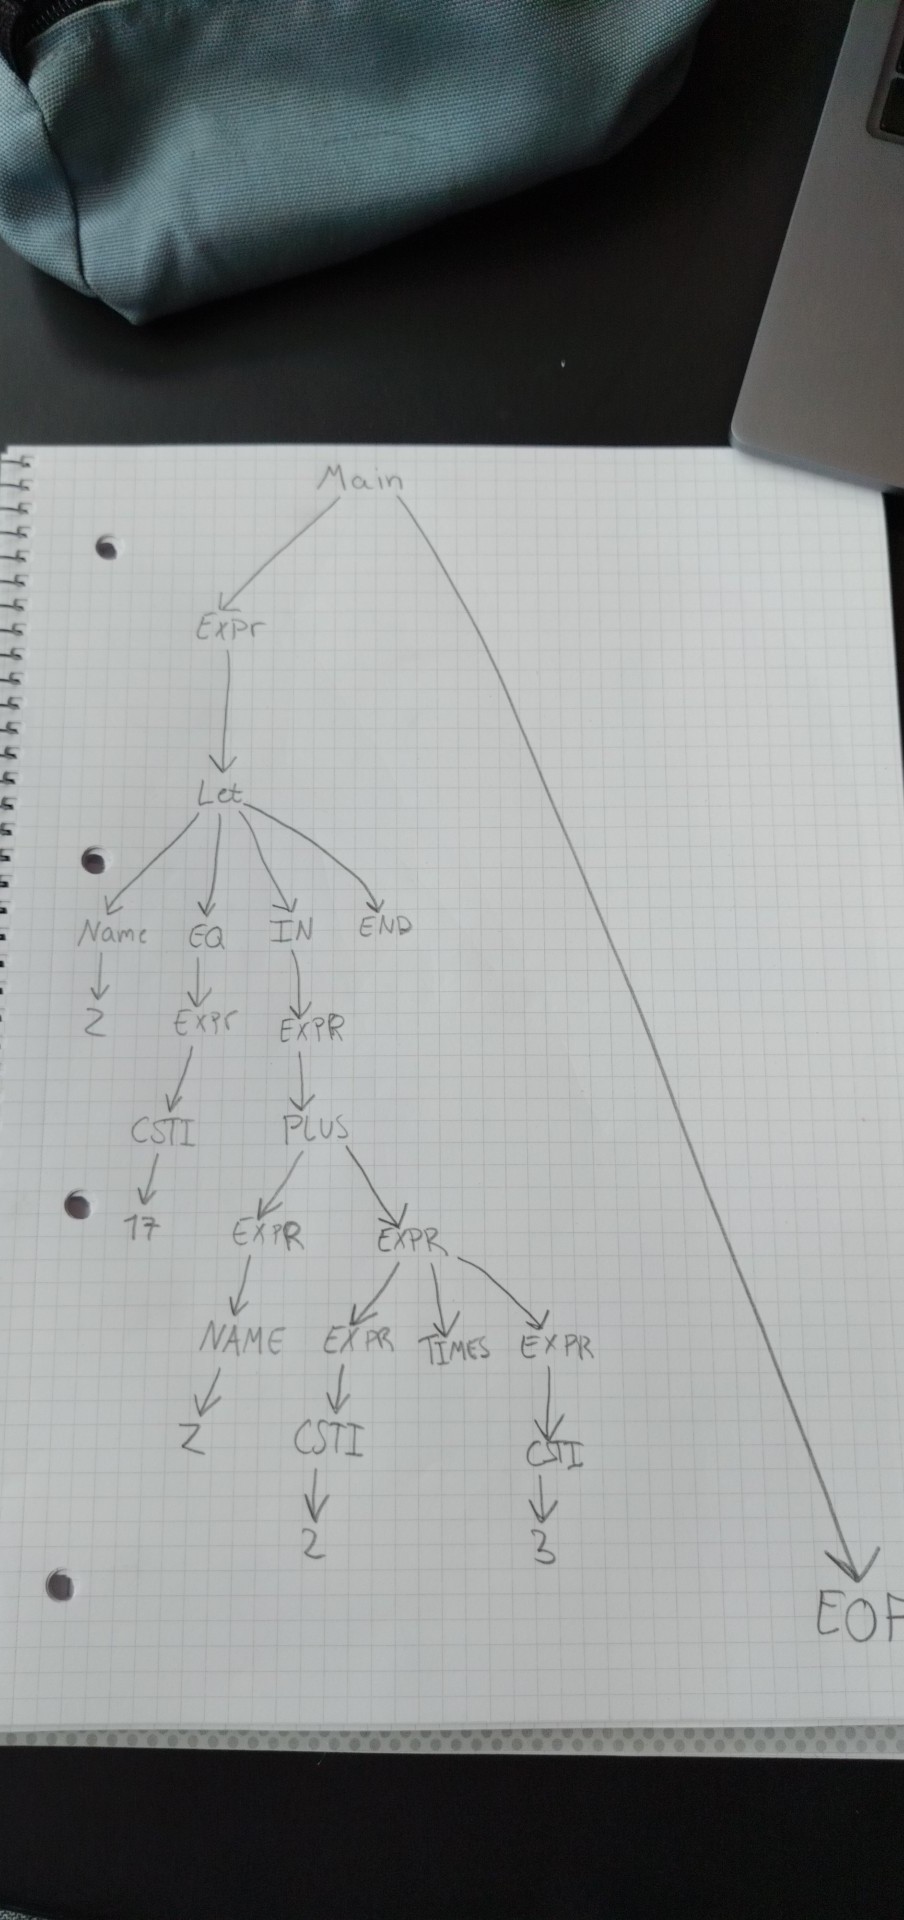 Main
Expr
Let
Name EQ IN END
z Expr EXPR
CSTI PLUS
17 EXPR EXPR
NAME EXPR TIMES EXPR
z CSTI CSTI
2 3
EOF